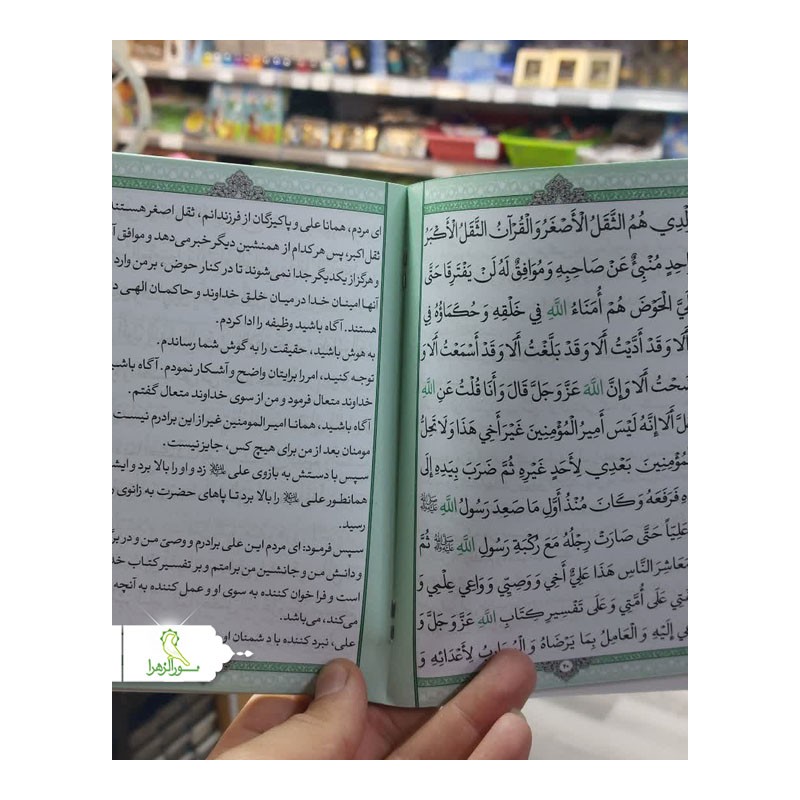 لَّذِي هُمُ الثَّقَلُ الْأَصْغَرُ وَالْقُرْآنُ الثَّقَلُ الْأَكْبَرُ
احِدٍ مُنْبِئٌ عَنْ صَاحِبِهِ وَمُوَافِقٌ لَهُ لَنْ يَفْتَرِقَا حَتَّى
لَيَّ الْحَوْضَ هُمْ أُمَنَاءُ اللَّهِ فِي خَلْقِهِ وَحُكَمَاؤُهُ فِي
أَلَا وَقَدْ أَدَّيْتُ أَلَا وَقَدْ بَلَّغْتُ أَلَا وَقَدْ أَسْمَعْتُ أَلَا وَ
ضَحْتُ أَلَا وَإِنَّ اللَّهَ عَزَّ وَجَلَّ قَالَ وَأَنَا قُلْتُ عَنِ اللَّهِ
لَّ أَلَا إِنَّهُ لَيْسَ أَمِيرُ الْمُؤْمِنِينَ غَيْرَ أَخِي هَذَا وَلَا تَحِلُّ
لْمُؤْمِنِينَ بَعْدِي لِأَحَدٍ غَيْرِهِ ثُمَّ ضَرَبَ بِيَدِهِ إِلَى
هِ فَرَفَعَهُ وَكَانَ مُنْذُ أَوَّلِ مَا صَعِدَ رَسُولُ اللَّهِ ﷺ
عَلِيّاً حَتَّى صَارَتْ رِجْلُهُ مَعَ رُكْبَةِ رَسُولِ اللَّهِ ﷺ ثُمَّ
مَعَاشِرَ النَّاسِ هَذَا عَلِيٌّ أَخِي وَوَصِيِّي وَوَاعِي عِلْمِي وَ
فَتِي عَلَى أُمَّتِي وَعَلَى تَفْسِيرِ كِتَابِ اللَّهِ عَزَّ وَجَلَّ وَ
عِي إِلَيْهِ وَ الْعَامِلُ بِمَا يَرْضَاهُ وَ الْمُحَارِبُ لِأَعْدَائِهِ وَ
ای مردم، همانا علی و پاکیزگان از فرزندانم، ثقل اصغر هستند
ثقل اکبر، پس هر کدام از همنشین دیگر خبر می‌دهد و موافق آ
و هرگز از یکدیگر جدا نمی‌شوند تا در کنار حوض، بر من وارد
آنها امینان خدا در میان خلق خداوند و حاکمان الهی د
هستند. آگاه باشید وظیفه را ادا کردم.
به هوش باشید، حقیقت را به گوش شما رساندم.
توجه کنید، امر را برایتان واضح و آشکار نمودم. آگاه باشی
خداوند متعال فرمود و من از سوی خداوند متعال گفتم.
آگاه باشید، همانا امیرالمومنین غیر از این برادرم نیست
مومنان بعد از من برای هیچ کس، جایز نیست.
سپس با دستش به بازوی علی زد و او را بالا برد و ایش
همانطور علی را بالا برد تا پاهای حضرت به زانوی ر
رسید.
سپس فرمود: ای مردم این علی برادرم و وصیّ من و در برگ
و دانش من و جانشین من برامتم و بر تفسیر کتاب خد
است و فرا خوان کننده به سوی او و عمل کننده به آنچه
می‌کند، می‌باشد.
علی، نبرد کننده با دشمنان او
نورالزهرا